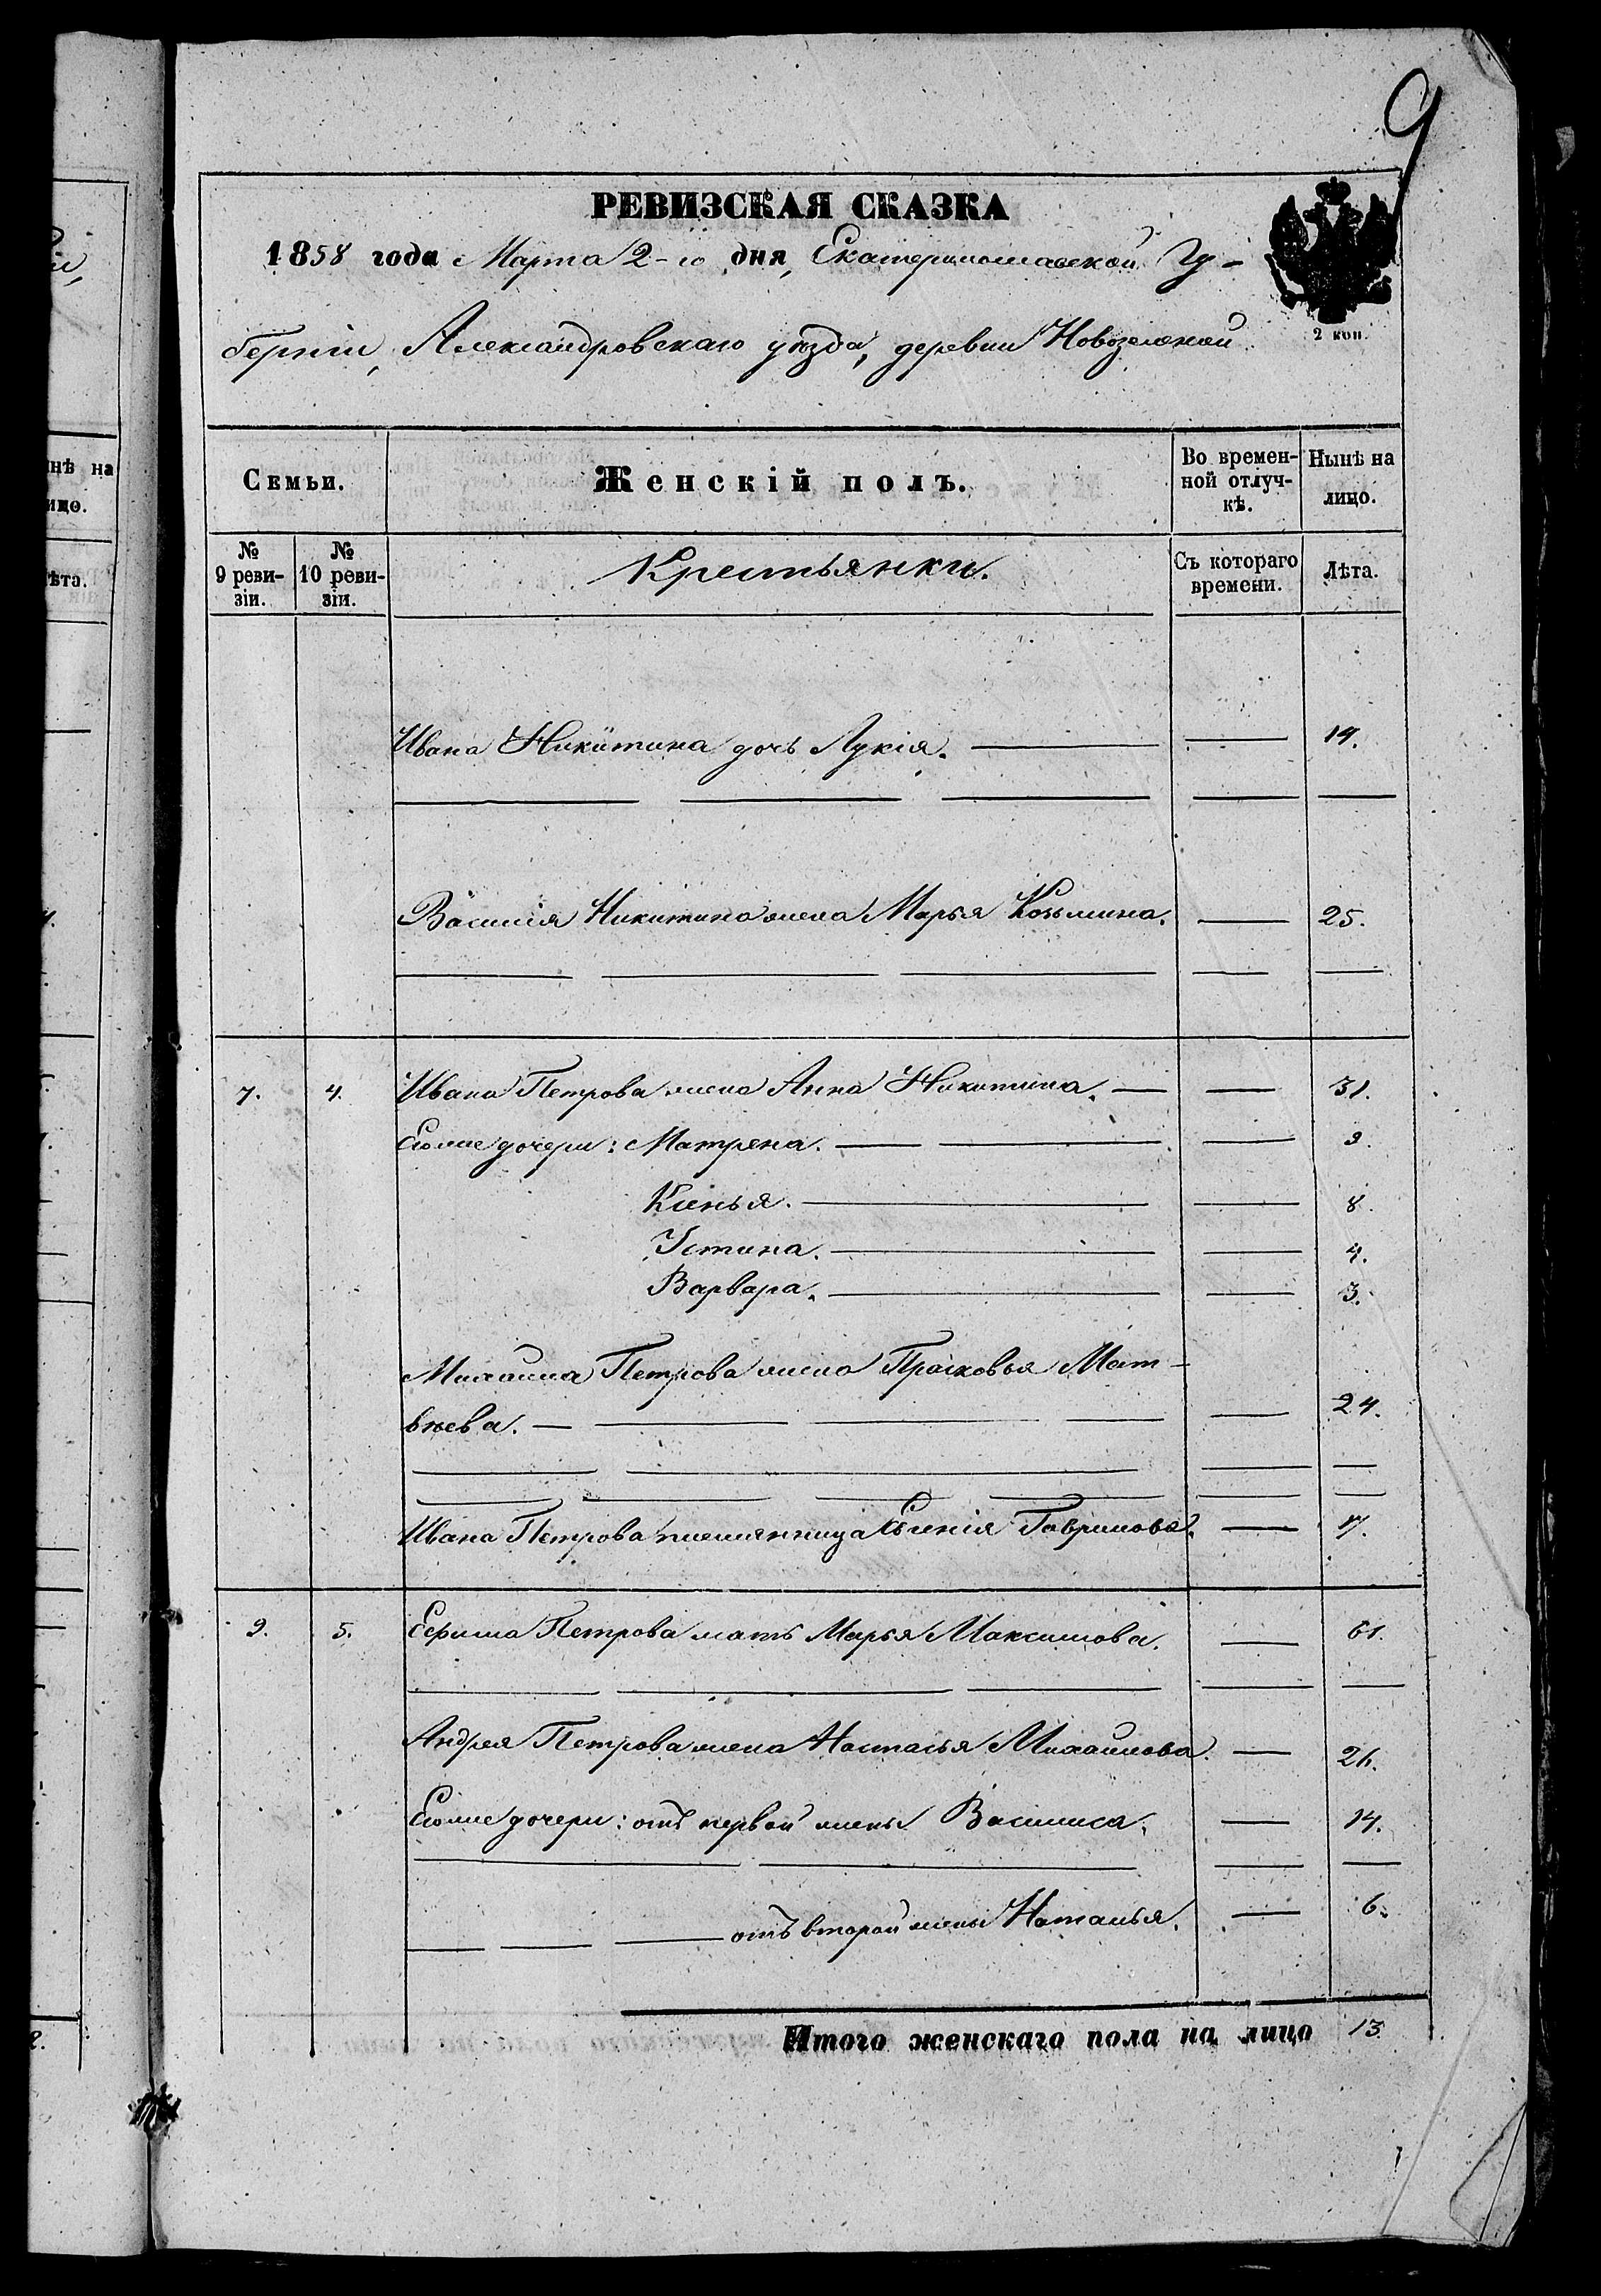 9
РЕВИЗСКАЯ СКАЗКА
1858 года Марта 2-го дня, Екатеринославской Гу-
берніи, Александровскаго уѣзда, деревни
2 коп.
Семьи.
Женскій полъ.
Во времен-
ной отлуч-
кѣ.
Нынѣ на
лицо.
№
9 реви-
зіи.
№
10 реви-
зіи.
Крестьянки.
Съ котораго
времени.
Лѣта.
Ивана Никитина дочь Лукія. 14.
Василія Никитина жена Марья Козьмина. 25.
7. 4. Ивана Петрова жена Анна Никитина. 31.
Егоже дочери: Матрена. 9.
Ксенья. 8.
Устина. 4.
Варвара. 3.
Михаила Петрова жена Прасковья Мат-
вѣева. 24.
Ивана Петрова племянница Гаврилова.
9. 5. Ефима Петрова мать Марья Максимова. 61.
Андрея Петрова жена Настасья Михайлова. 26.
Егоже дочери: отъ первой жены Василиса. 14.
отъ второй жены Наталья. 6.
Итого женскаго пола на лицо 13.